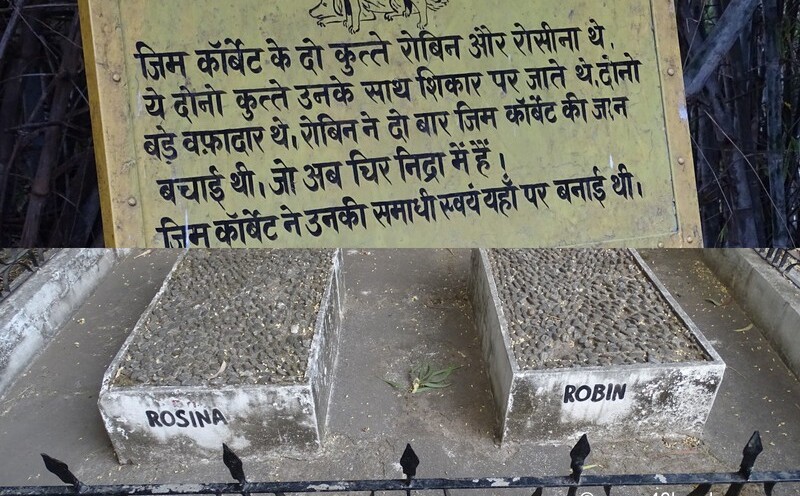 जिम कॉर्बेट के दो कुत्ते रोबिन और रोसीना थे,
ये दोनो कुत्ते उनके साथ शिकार पर जाते थे, दोनो
बड़े वफ़ादार थे, रोबिन ने दो बार जिम कॉर्बेट की जान
बचाई थी। जो अब चिर निद्रा में हैं।
जिम कॉर्बेट ने उनकी समाधी स्वयं यहाँ पर बनाई थी।
ROSINA
ROBIN